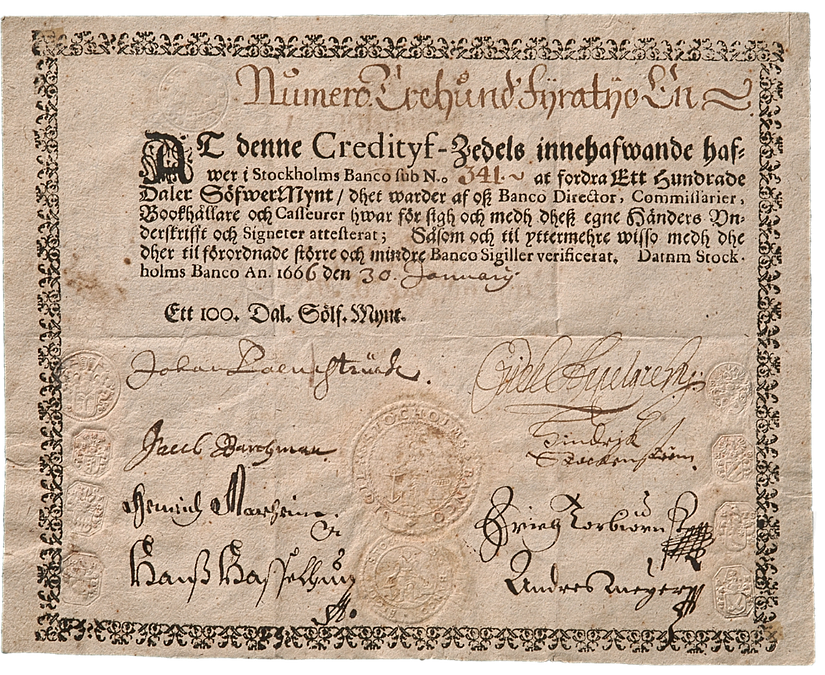 Numero Trehund Fyratyo En
AT denne Credityf-Zedels innehafwande haf-
wer i Stockholms Banco sub N.o 341 at fordra Ett Hundrade
Daler SöfwerMynt / dhet warder af oß Banco Director, Commissarier,
Bookhållare och Casseurer hwar för sigh och medh dheß egne Händers Vn-
derskrifft och Signeter attesterat; Såsom och til yttermehre wisso medh dhe
dher til förordnade större och mindre Banco Sigiller verificerat. Datum Stock-
holms Banco An. 1666 den 30. January
Ett 100. Dal. Sölf. Mynt.
Johan Palmstrüch.
Jacob Barchman
Hindrich
Heinrich
Erich Torbiörn
Hanß
Andres Meyer
STOCHOLMS BANCO